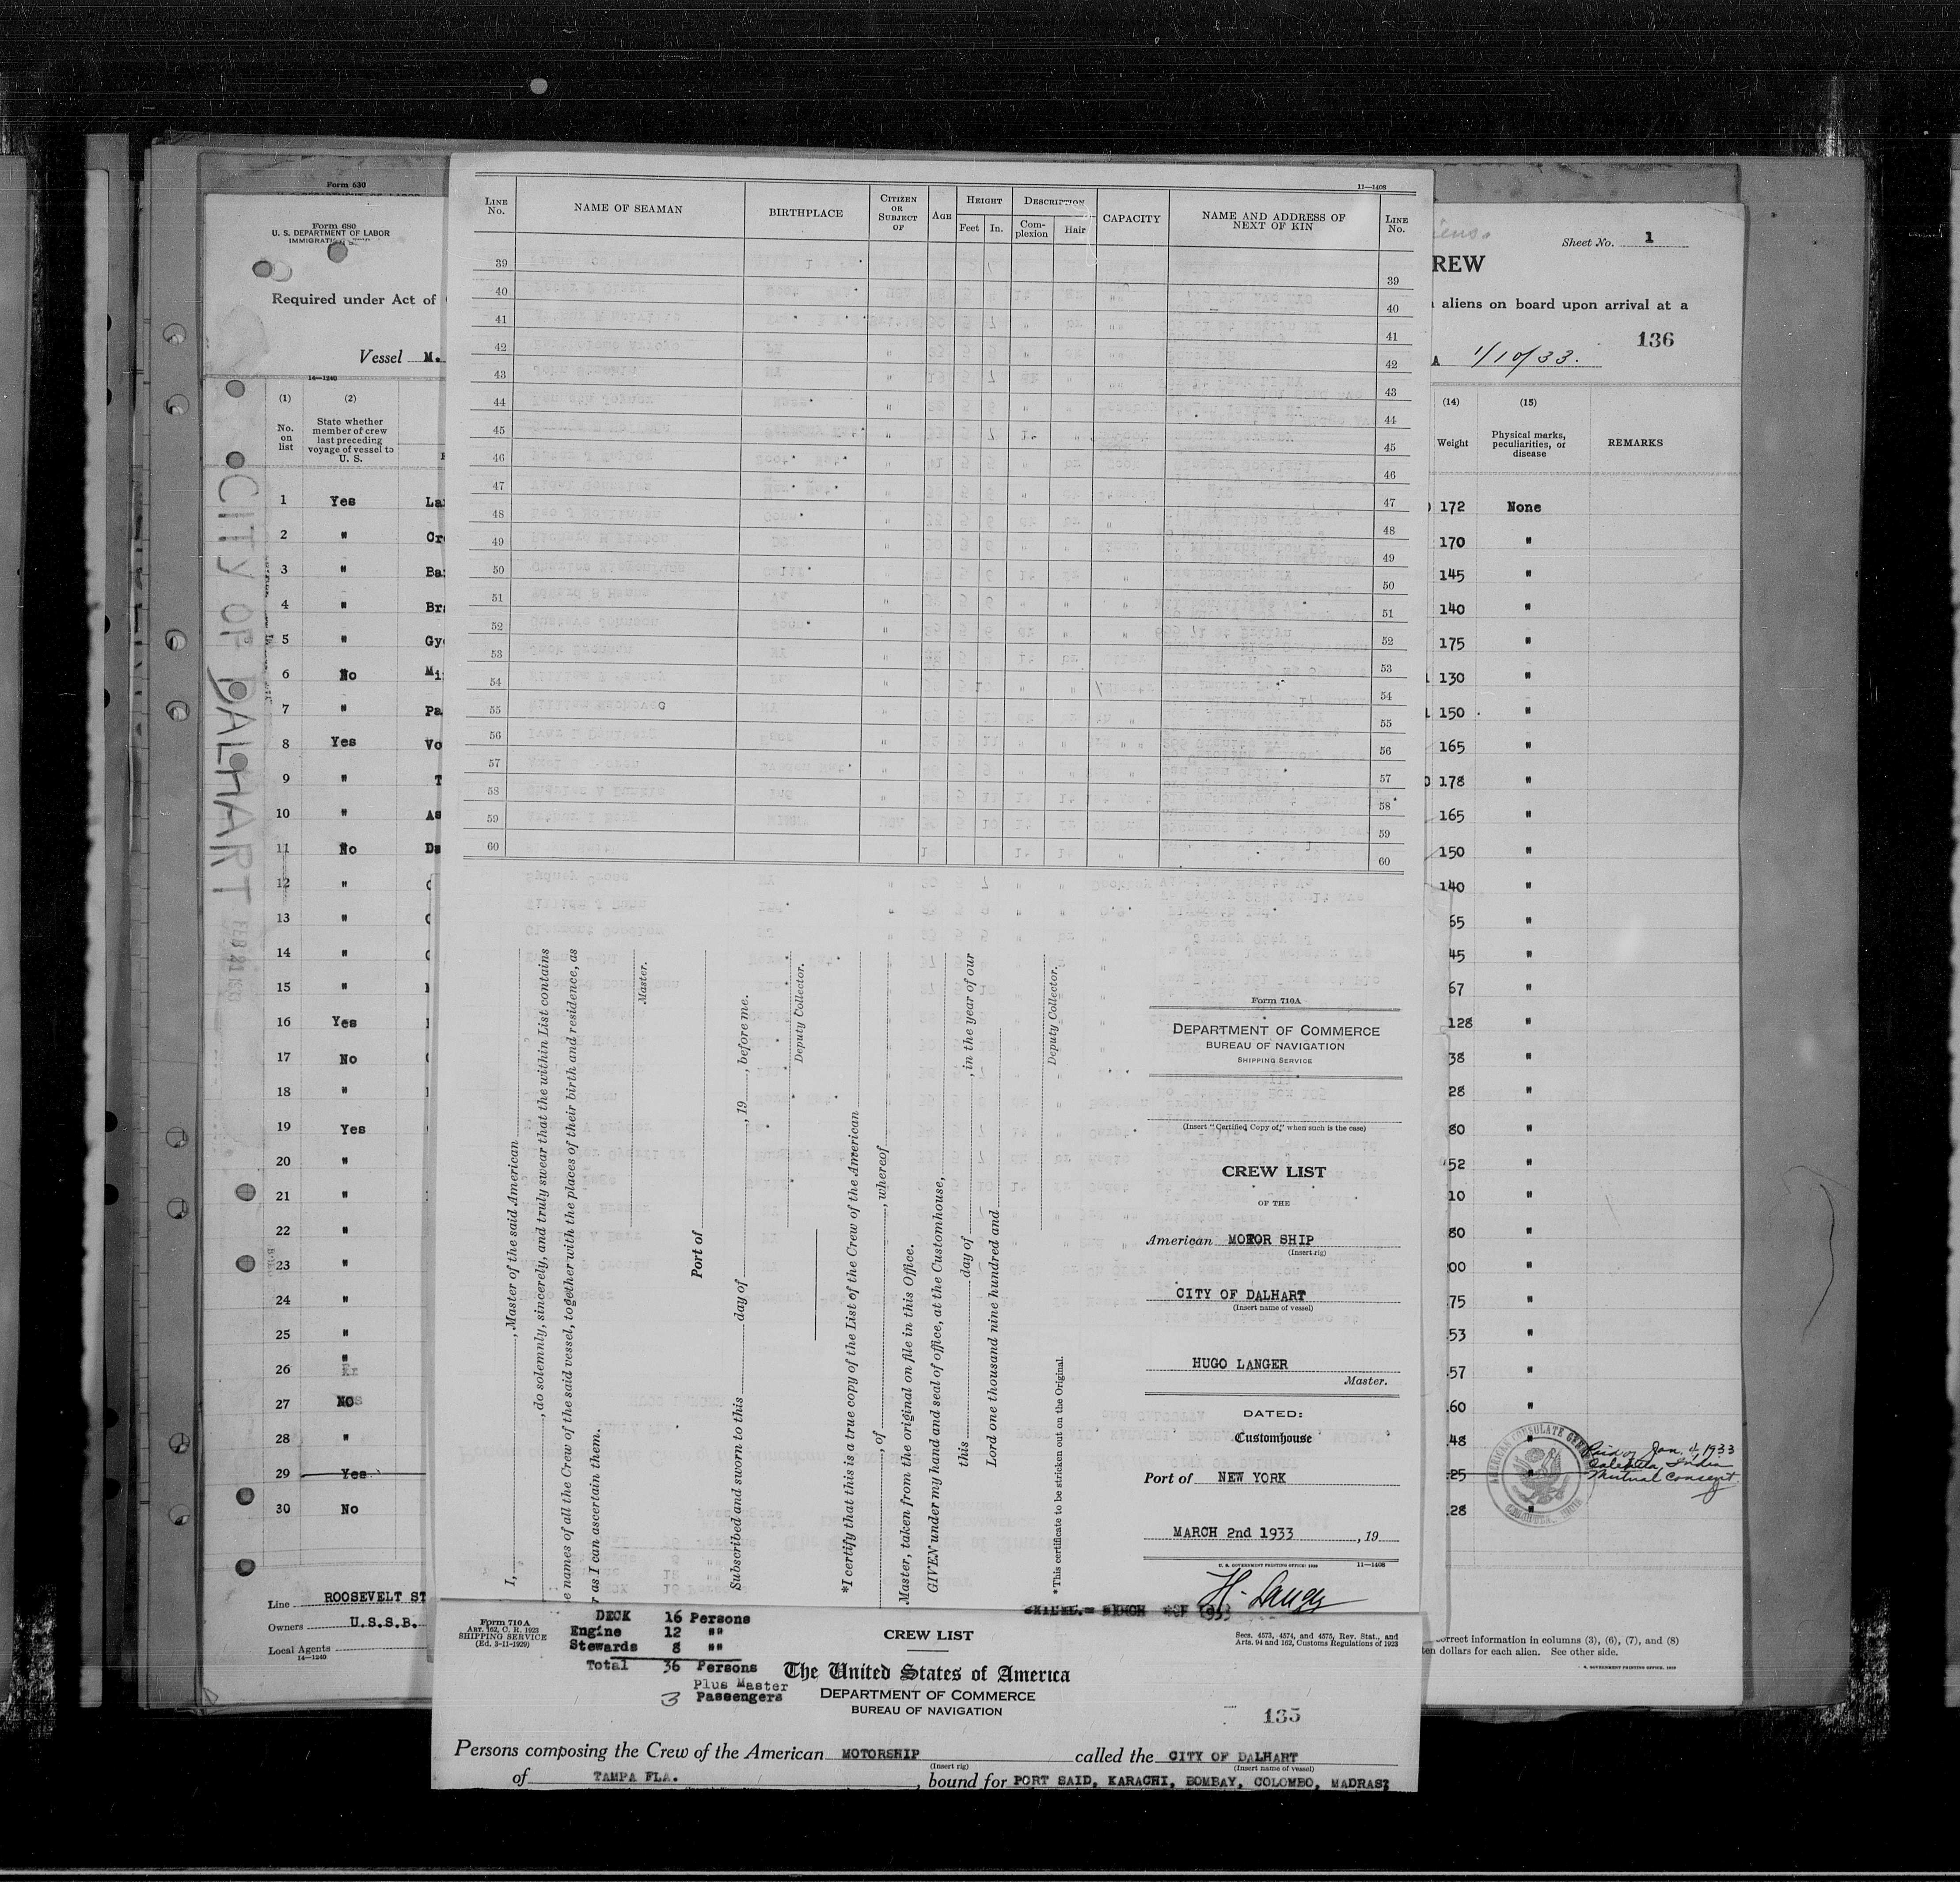 Form 630
Form 680
U. S. DEPARTMENT OF LABOR
Required under Act of
Vessel M.
14—1240
(1)
(2)
No. on list
State whether member of crew last preceding voyage of vessel to U. S.
1 Yes
2 "
3 " Ba
4 "
5 " Gy
6 No Mi
7 " Pa
8 Yes Vo
9 " T
10 " As
11 No Da
12 "
13 "
14 "
15 "
16 Yes
17 No
18 "
19 Yes
20 "
21 "
22 "
23 "
24 "
25 "
26 "
27 NO
28 "
29 Yes
30 No
Line ROOSEVELT ST
Owners U.S.S.B.
Local Agents
14—1240
CITY OF DALHART
FEB 21 1933
11—1408
LINE No.
NAME OF SEAMAN
BIRTHPLACE
CITIZEN OR SUBJECT OF
AGE
HEIGHT
Feet
In.
DESCRIPTION
Complexion
Hair
CAPACITY
NAME AND ADDRESS OF NEXT OF KIN
LINE No.
39 39
40 40
41 41
42 42
43 43
44 44
45 45
46 46
47 47
48 48
49 49
50 50
51 51
52 52
53 53
54 54
55 55
56 56
57 57
58 58
59 59
60 60
I, , Master of the said American
, do solemnly, sincerely, and truly swear that the within List contains
e names of all the Crew of the said vessel, together with the places of their birth and residence, as
r as I can ascertain them.
Master.
Port of
Subscribed and sworn to this day of , 19 , before me.
Deputy Collector.
*I certify that this is a true copy of the List of the Crew of the American
, of , whereof
Master, taken from the original on file in this Office.
GIVEN under my hand and seal of office, at the Customhouse,
this day of , in the year of our
Lord one thousand nine hundred and
Deputy Collector.
*This certificate to be stricken out on the Original.
Form 710A
DEPARTMENT OF COMMERCE
BUREAU OF NAVIGATION
SHIPPING SERVICE
(Insert "Certified Copy of," when such is the case)
CREW LIST
OF THE
American MOTOR SHIP
(Insert rig)
CITY OF DALHART
(Insert name of vessel)
HUGO LANGER
Master.
DATED:
Customhouse
Port of NEW YORK
MARCH 2nd 1933 , 19
U. S. GOVERNMENT PRINTING OFFICE: 1930 11—1408
H. Langer
Form 710 A
ART. 162, C. R. 1923
SHIPPING SERVICE
(Ed. 3-11-1929)
DECK 16 Persons
Engine 12 ""
Stewards 8 ""
Total 36 Persons
Plus Master
3 Passengers
CREW LIST
Secs. 4573, 4574, and 4575, Rev. Stat., and
Arts. 94 and 162, Customs Regulations of 1923
The United States of America
DEPARTMENT OF COMMERCE
BUREAU OF NAVIGATION
135
Persons composing the Crew of the American MOTORSHIP called the CITY OF DALHART
(Insert rig) (Insert name of vessel)
of TAMPA FLA. , bound for PORT SAID, KARACHI, BOMBAY, COLOMBO, MADRAS;
Sheet No. 1
REW
aliens on board upon arrival at a
136
A 1/10/33.
(14)
(15)
Weight
Physical marks, peculiarities, or disease
REMARKS
172 None
170 "
145 "
140 "
175 "
130 "
150 "
165 "
178 "
165 "
150 "
140 "
65 "
45 "
67 "
128 "
38 "
28 "
80 "
52 "
10 "
80 "
00 "
75 "
53 "
57 "
60 "
48 "
25 "
28 "
AMERICAN CONSULATE GENERAL
CALCUTTA, INDIA
Paid off Jan. 4, 1933
Calcutta, India
Mutual Consent
orrect information in columns (3), (6), (7), and (8)
ten dollars for each alien. See other side.
U. S. GOVERNMENT PRINTING OFFICE: 1929